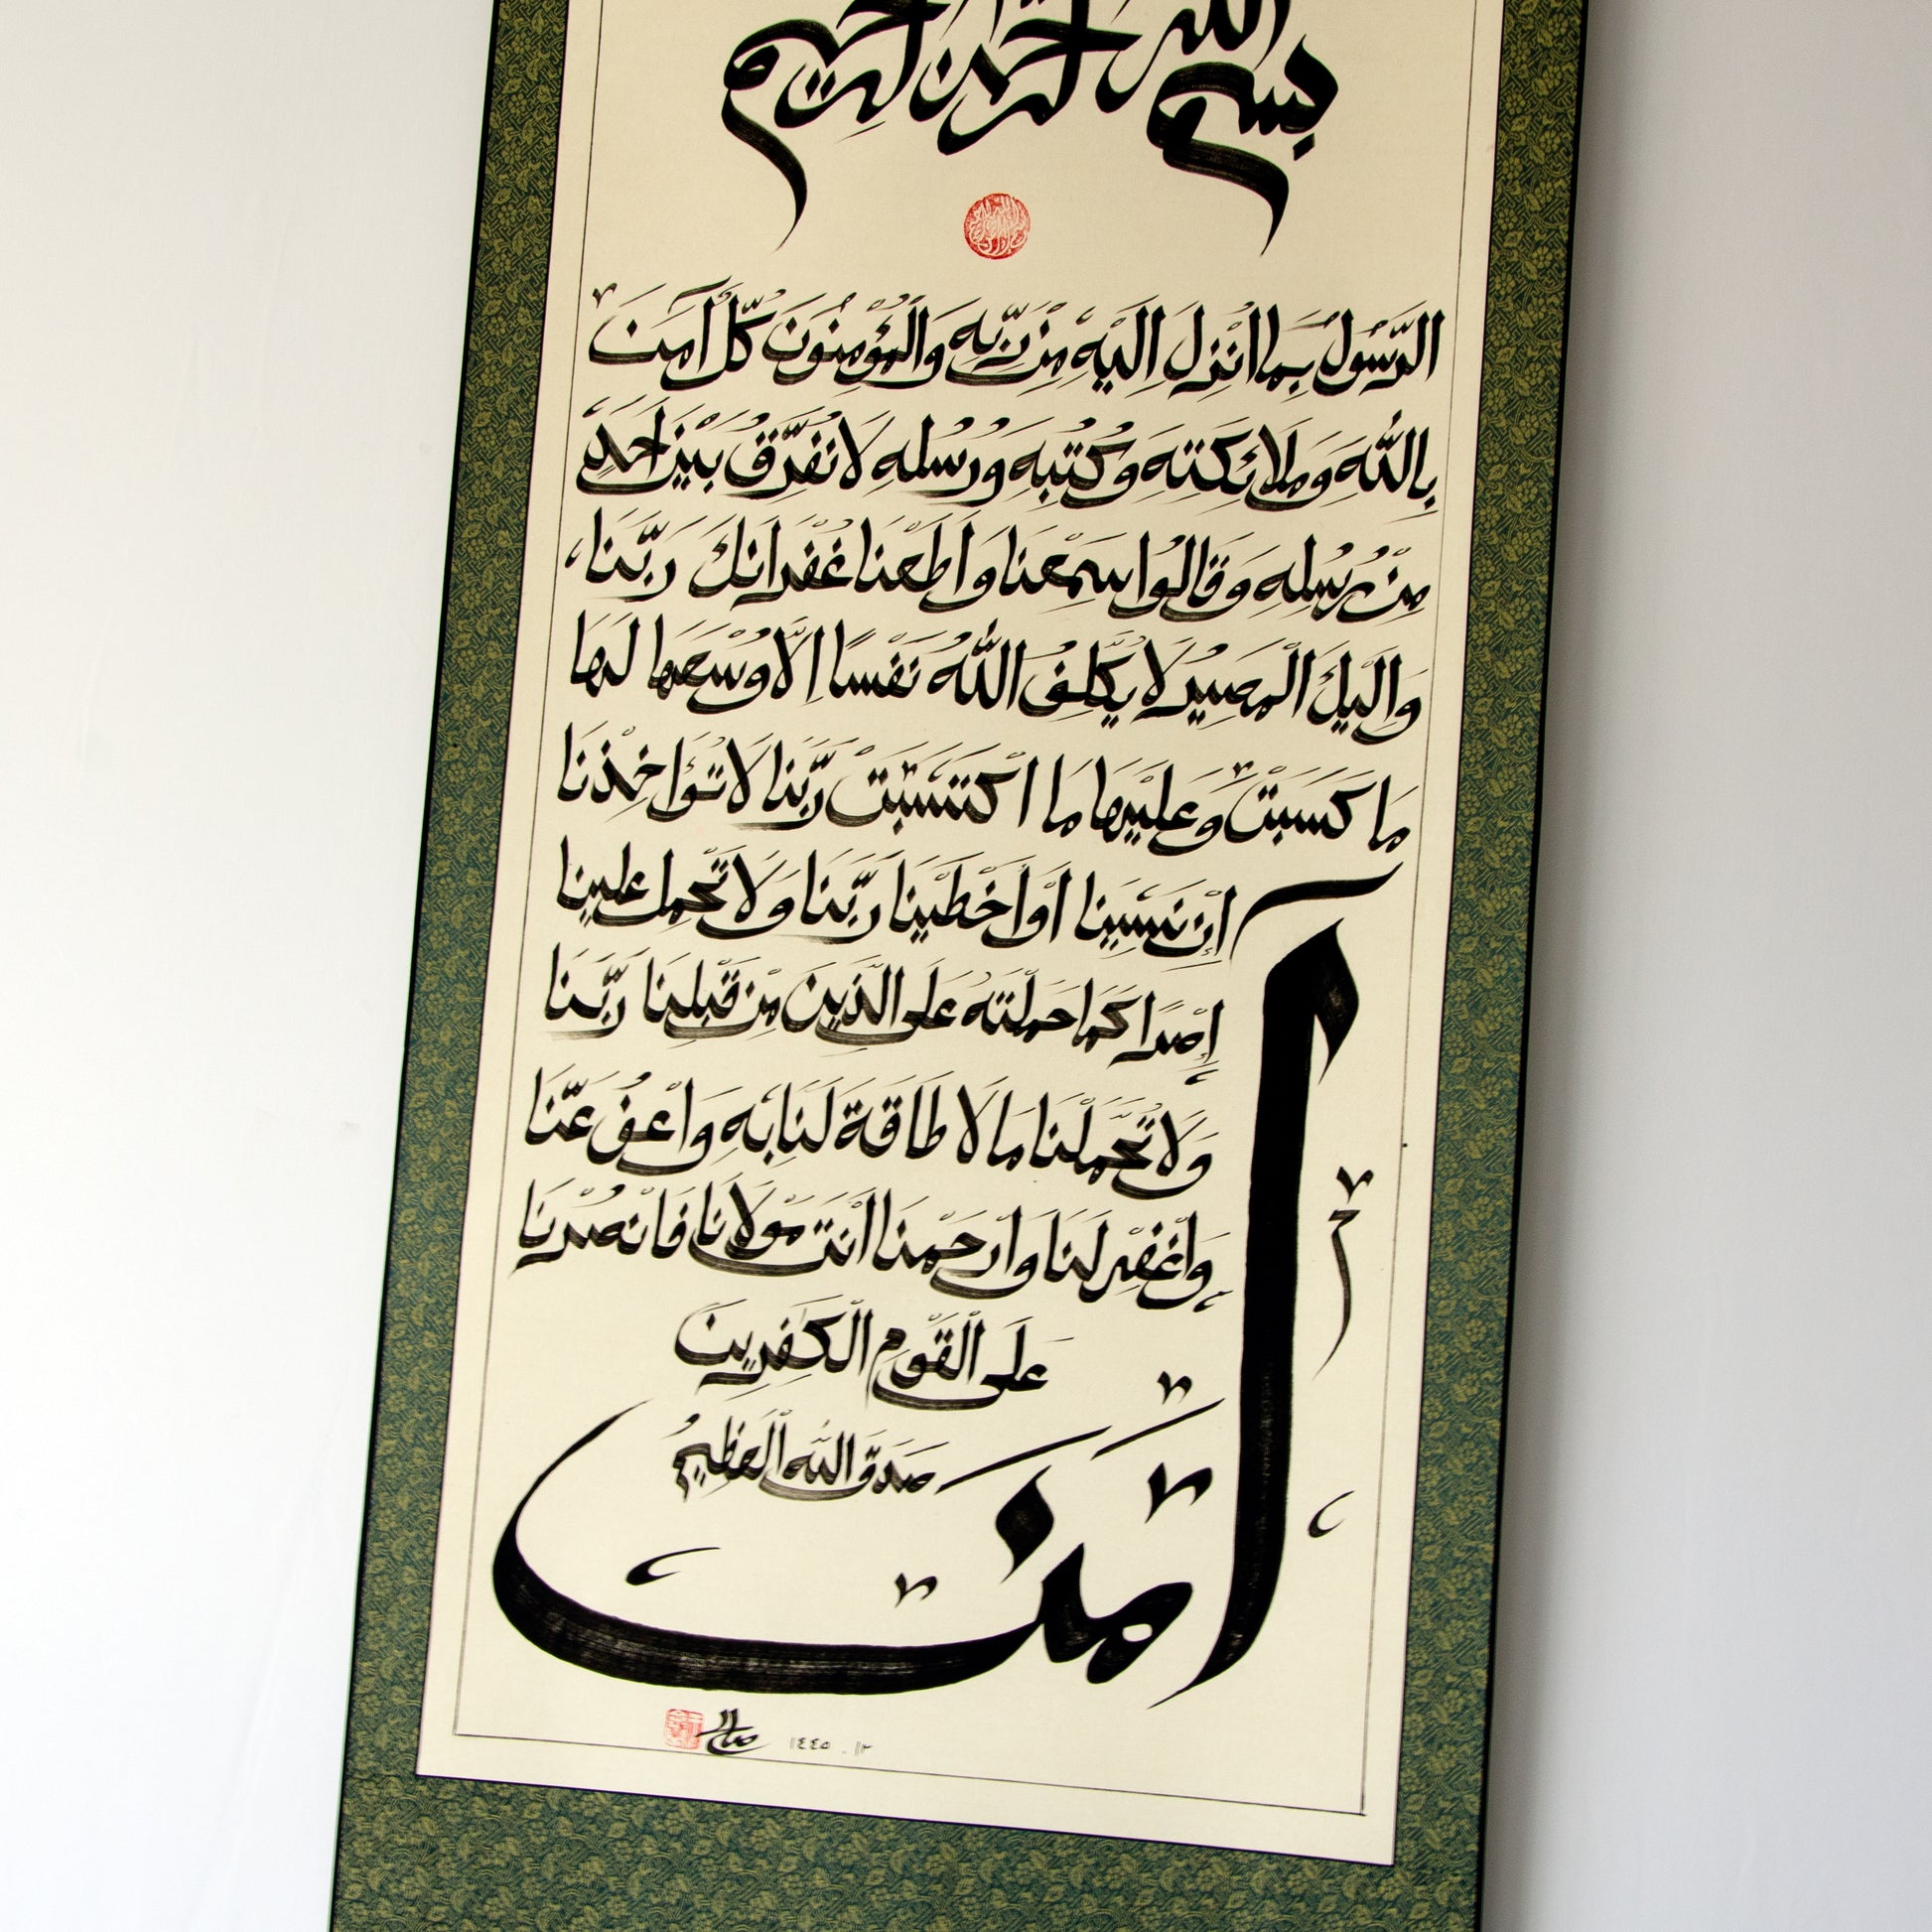 بسم الله الرحمن الرحيم
الرَّسُولُ بِمَا اُنْزِلَ اِلَيْهِ مِنْ رَّبِّهِ وَالْمُؤْمِنُونَ كُلٌّ اٰمَنَ
بِاللّٰهِ وَمَلَائِكَتِهِ وَكُتُبِهِ وَرُسُلِهِ لَا نُفَرِّقُ بَيْنَ اَحَدٍ
مِنْ رُسُلِهِ وَقَالُوا سَمِعْنَا وَاَطَعْنَا غُفْرَانَكَ رَبَّنَا
وَاِلَيْكَ الْمَصِيْرُ لَا يُكَلِّفُ اللّٰهُ نَفْسًا اِلَّا وُسْعَهَا لَهَا
مَا كَسَبَتْ وَعَلَيْهَا مَا اكْتَسَبَتْ رَبَّنَا لَا تُؤَاخِذْنَا
اِنْ نَسِيْنَا اَوْ اَخْطَيْنَا رَبَّنَا وَلَا تَحْمِل عَلَينَا
إِصْرًا كَمَا حَمَلْتَهُ عَلَى الَّذِينَ مِنْ قَبْلِنَا رَبَّنَا
وَلَا تُحَمِّلْنَا مَا لَا طَاقَةَ لَنَا بِهِ وَاعْفُ عَنَّا
وَاغْفِرْ لَنَا وَارْحَمْنَا اَنْتَ مَوْلَانَا فَانْصُرْنَا
عَلَى الْقَوْمِ الْكٰفِرِينَ
صَدَقَ اللّٰهُ الْعَظِيمُ
آمَنَ
صالح ١٤٤٥ - ١٢